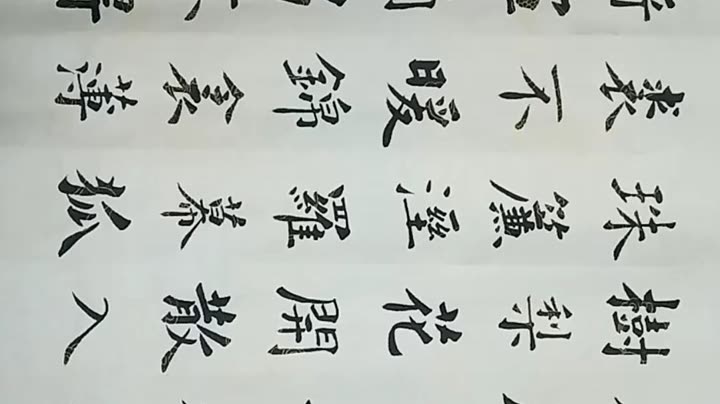 樹梨花開散入
珠簾濕羅幕狐
裘不暖錦衾薄